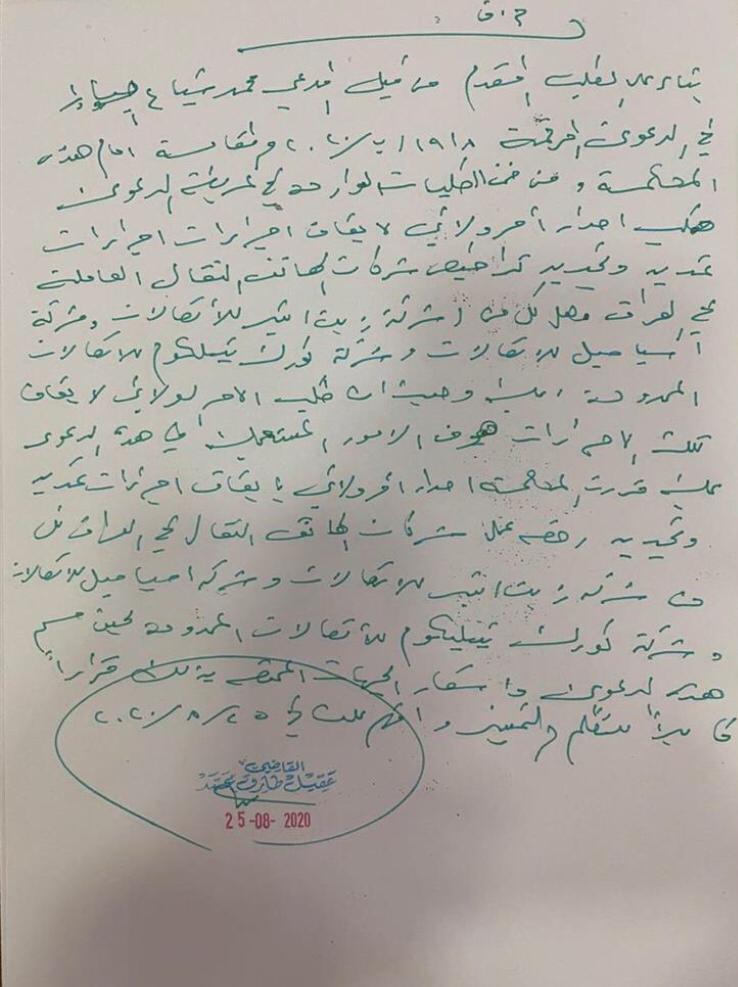 م. ق
بناء على الطلب المقدم من قبل المدعي محمد شياع
في الدعوى المرقمة ١٩١٨/ب/٢٠٢٠ والمقامة امام هذه
المحكمة ومن ضمن الطلبات الواردة في عريضة الدعوى
طلب اصدار أمر ولائي لايقاف اجراءات اجراءات
تمديد وتجديد تراخيص شركات الهاتف النقال العاملة
في العراق وهل كل من (شركة زين اثير للأتصالات وشركة
اسيا سيل للاتصالات وشركة كورك تيليكوم للاتصالات
المحدودة وحيث ان طلب الامر الولائي لايقاف
تلك الاجراءات هو من الامور المستعجلة في هذه الدعوى
عليه قررت المحكمة اصدار امر ولائي بايقاف اجراءات تمديد
وتجديد رخصة عمل شركات الهاتف النقال في العراق كل
من شركة زين اثير للاتصالات وشركة اسيا سيل للاتصالات
وشركة كورك تيليكوم للأتصالات المحدودة لحين حسم
هذه الدعوى واشعار الجهات المختصة بذلك قراراً
قابلاً للتظلم والتمييز وافهم علناً في ٢٥/٨/٢٠٢٠
القاضي
عقيل طارق محمد
25-08-2020